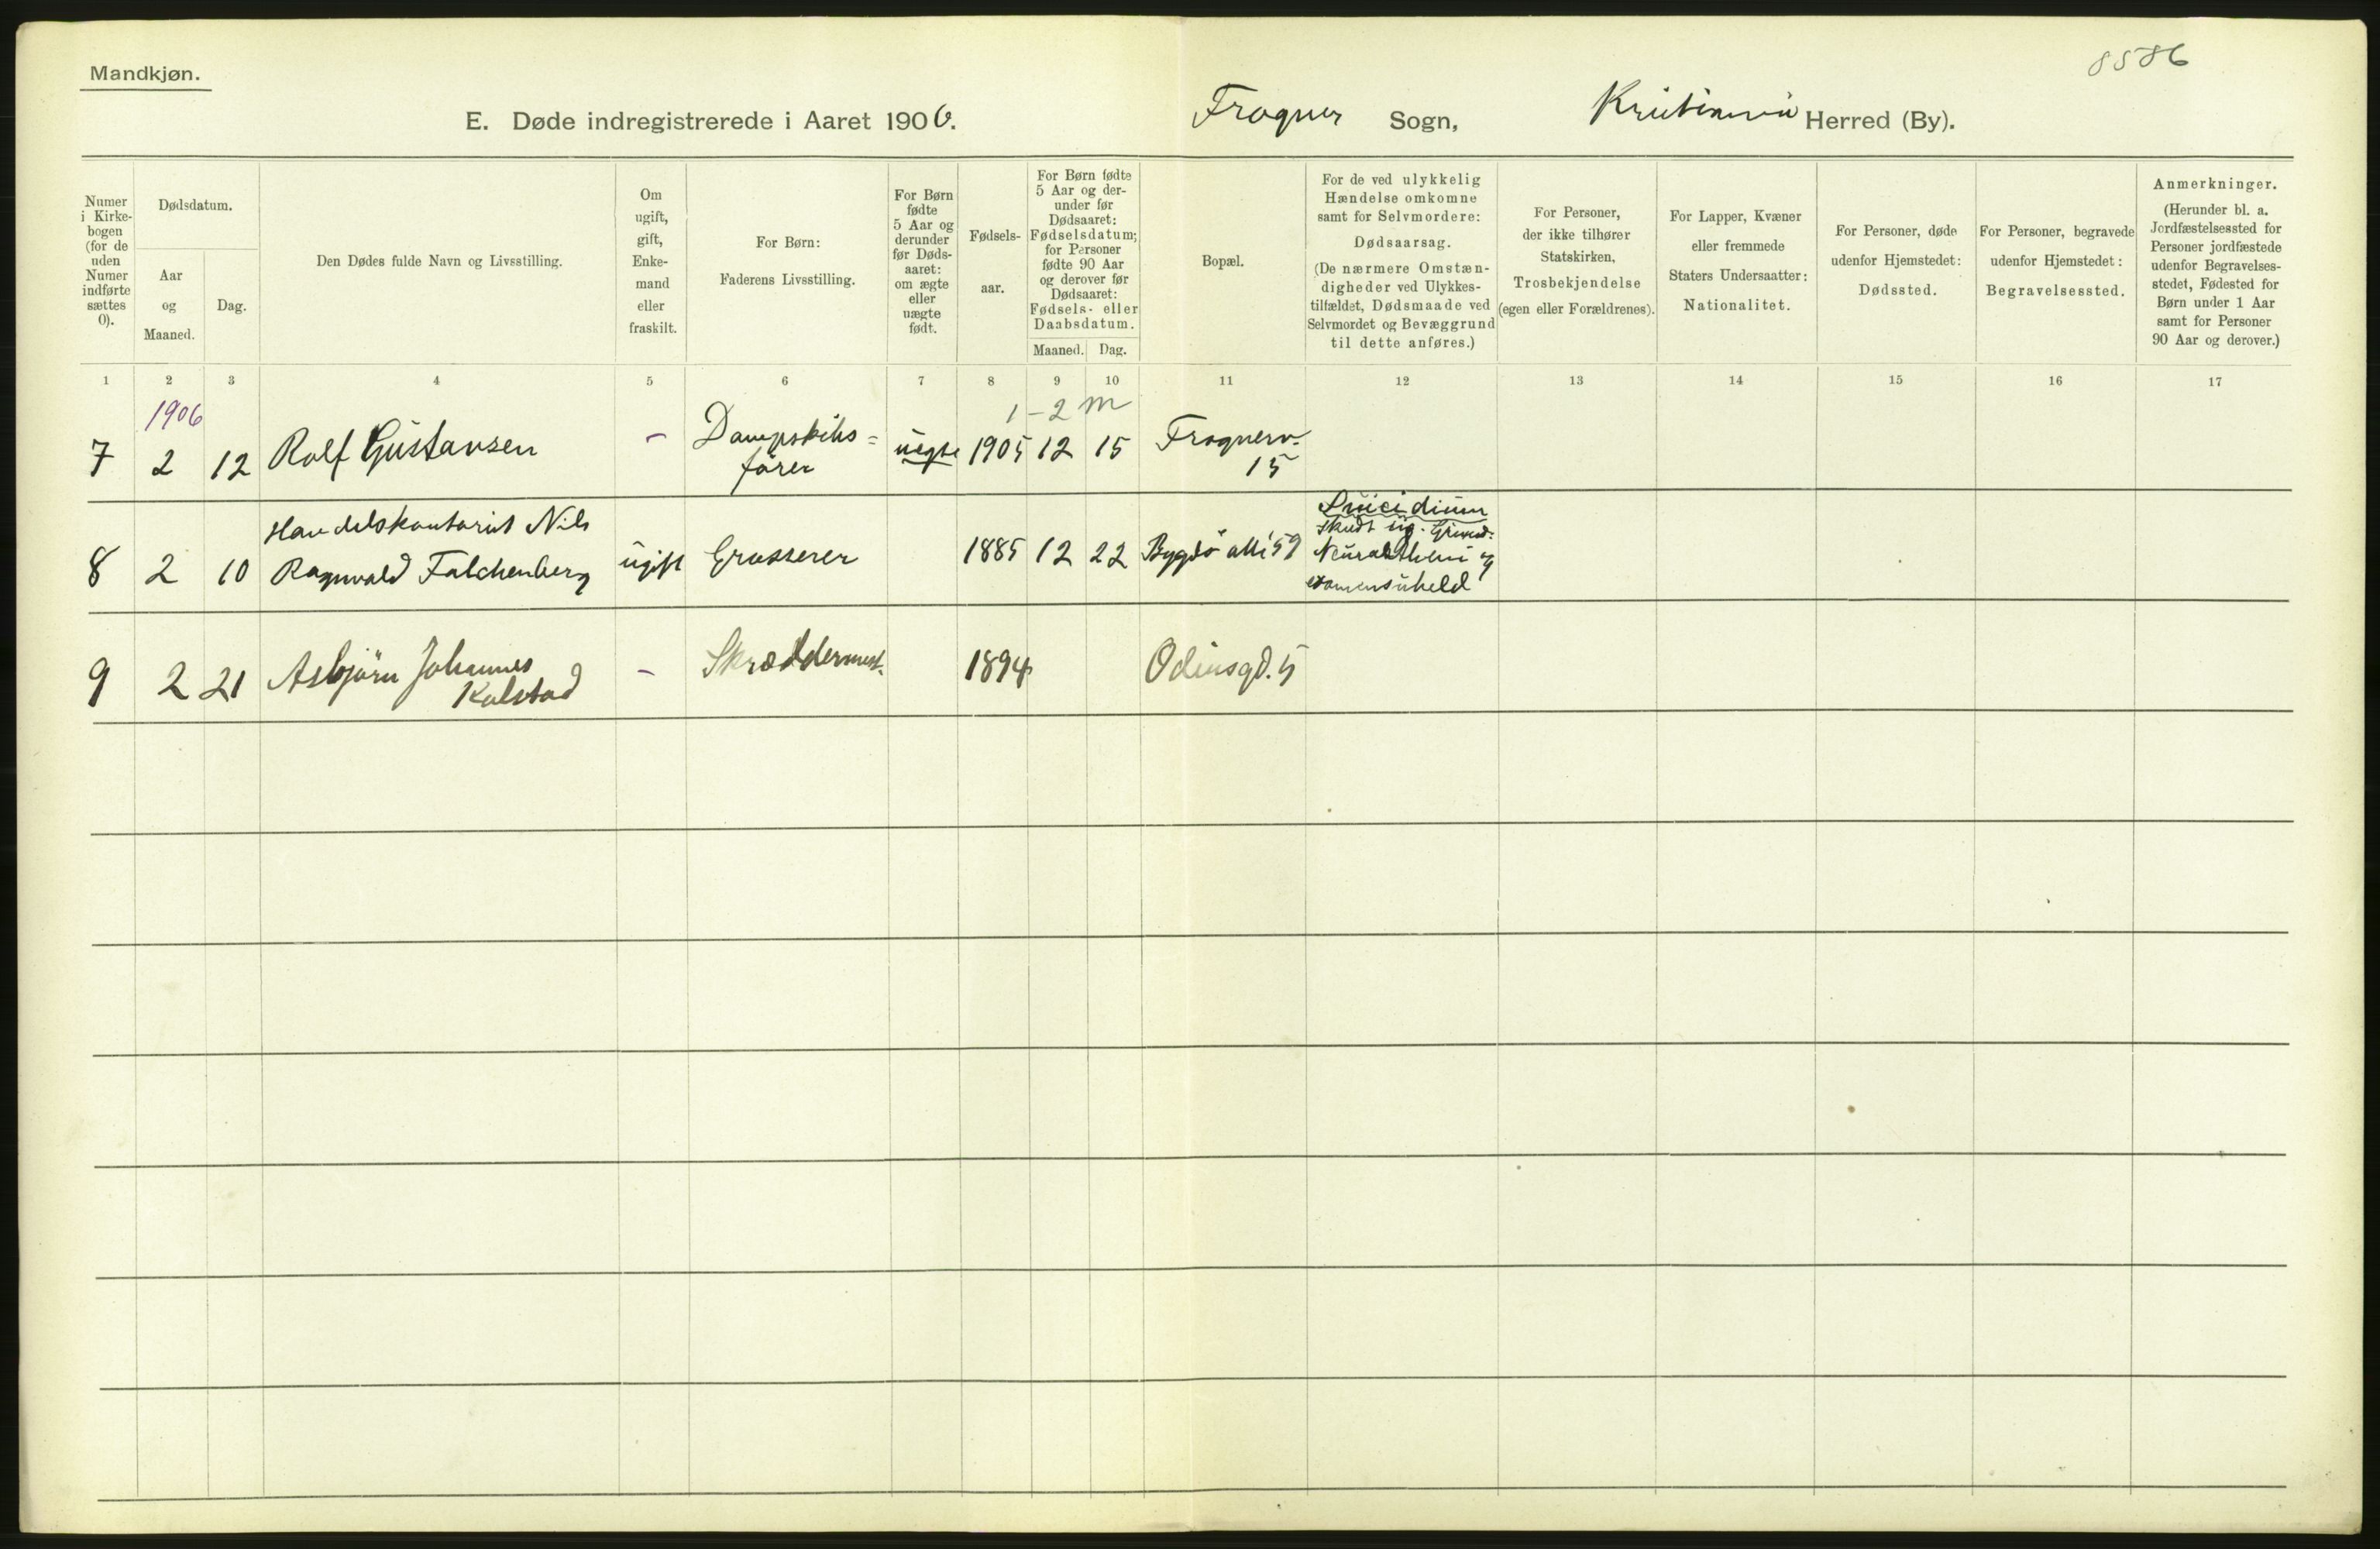 8586
Mandkjøn.
E. Døde indregistrerede i Aaret 1906. Frogner Sogn, Kristiania Herred (By).
Numer i Kirkebogen (for de uden Numer indførte sættes 0).
Dødsdatum.
Aar og Maaned.
Dag.
Den Dødes fulde Navn og Livsstilling.
Om ugift, gift, Enkemand eller fraskilt.
For Børn: Faderens Livsstilling.
For Børn fødte 5 Aar og derunder før Dødsaaret: om ægte eller uægte født.
Fødselsaar.
For Børn fødte 5 Aar og derunder før Dødsaaret: Fødselsdatum; for Personer fødte 90 Aar og derover før Dødsaaret: Fødsels- eller Daabsdatum.
Maaned. Dag.
Bopæl.
For de ved ulykkelig Hændelse omkomne samt for Selvmordere: Dødsaarsag. (De nærmere Omstændigheder ved Ulykkestilfældet, Dødsmaade ved Selvmordet og Bevæggrund til dette anføres.)
For Personer, der ikke tilhører Statskirken, Trosbekjendelse (egen eller Forældrenes).
For Lapper, Kvæner eller fremmede Staters Undersaatter: Nationalitet.
For Personer, døde udenfor Hjemstedet: Dødssted.
For Personer, begravede udenfor Hjemstedet: Begravelsessted.
Anmerkninger. (Herunder bl. a. Jordfæstelsessted for Personer jordfæstede udenfor Begravelsesstedet, Fødested for Børn under 1 Aar samt for Personer 90 Aar og derover.)
1 2 3 4 5 6 7 8 9 10 11 12 13 14 15 16 17
1906
1-2 m
7 2 12 Rolf Gustavsen - Dampskibs= uegte 1905 12 15 Frognerv.
fører 15
Suicidium
Handelskontorist Nils skudt sig. Grund:
8 2 10 Ragnvald Falchenberg ugift Grosserer 1885 12 22 Bygdø allé 59 Neurastheni og
examensuheld
9 2 21 Asbjørn Johannes - Skræddermest. 1894 Odinsgd. 5
Kolstad